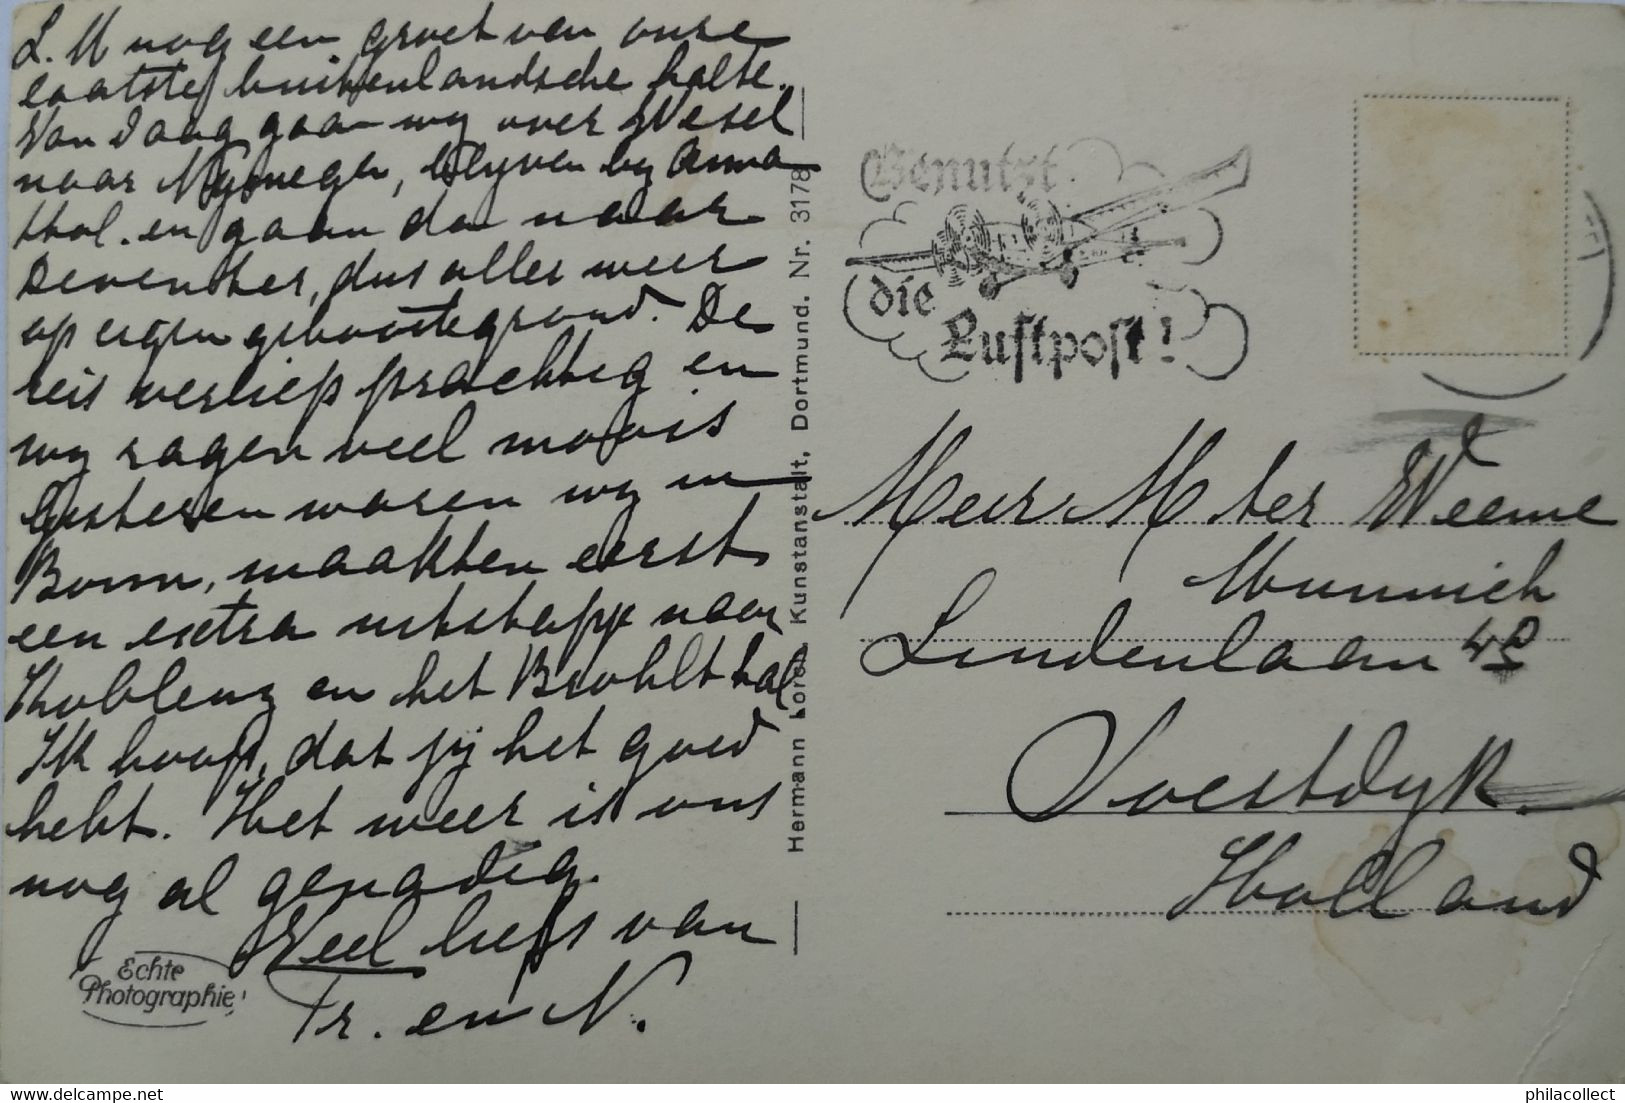 L. M nog een groet van onze
laatste buitenlandsche halte.
Van daag gaan wy over Wesel
naar Nymegen, blyven by Anna
thol. en gaan da naar
Deventer, dus alles weer
op eigen geboortegrond. De
reis verliep prachtig en
wy zagen veel moois
Gisteren waren wy in
Bonn, maakten eerst
een extra uitstapje naar
Koblenz en het Brohltthal
Ik hoop, dat jij het goed
hebt. Het weer is ons
nog al genadig.
Veel liefs van
Tr. en N.
Echte
Photographie!
Hermann Lorch Kunstanstalt, Dortmund. Nr. 3178
Benutzt
die
Luftpost!
Meir M ter Weeme
Munnich
Lindenlaan 42
Soestdyk.
Holland
philacollect